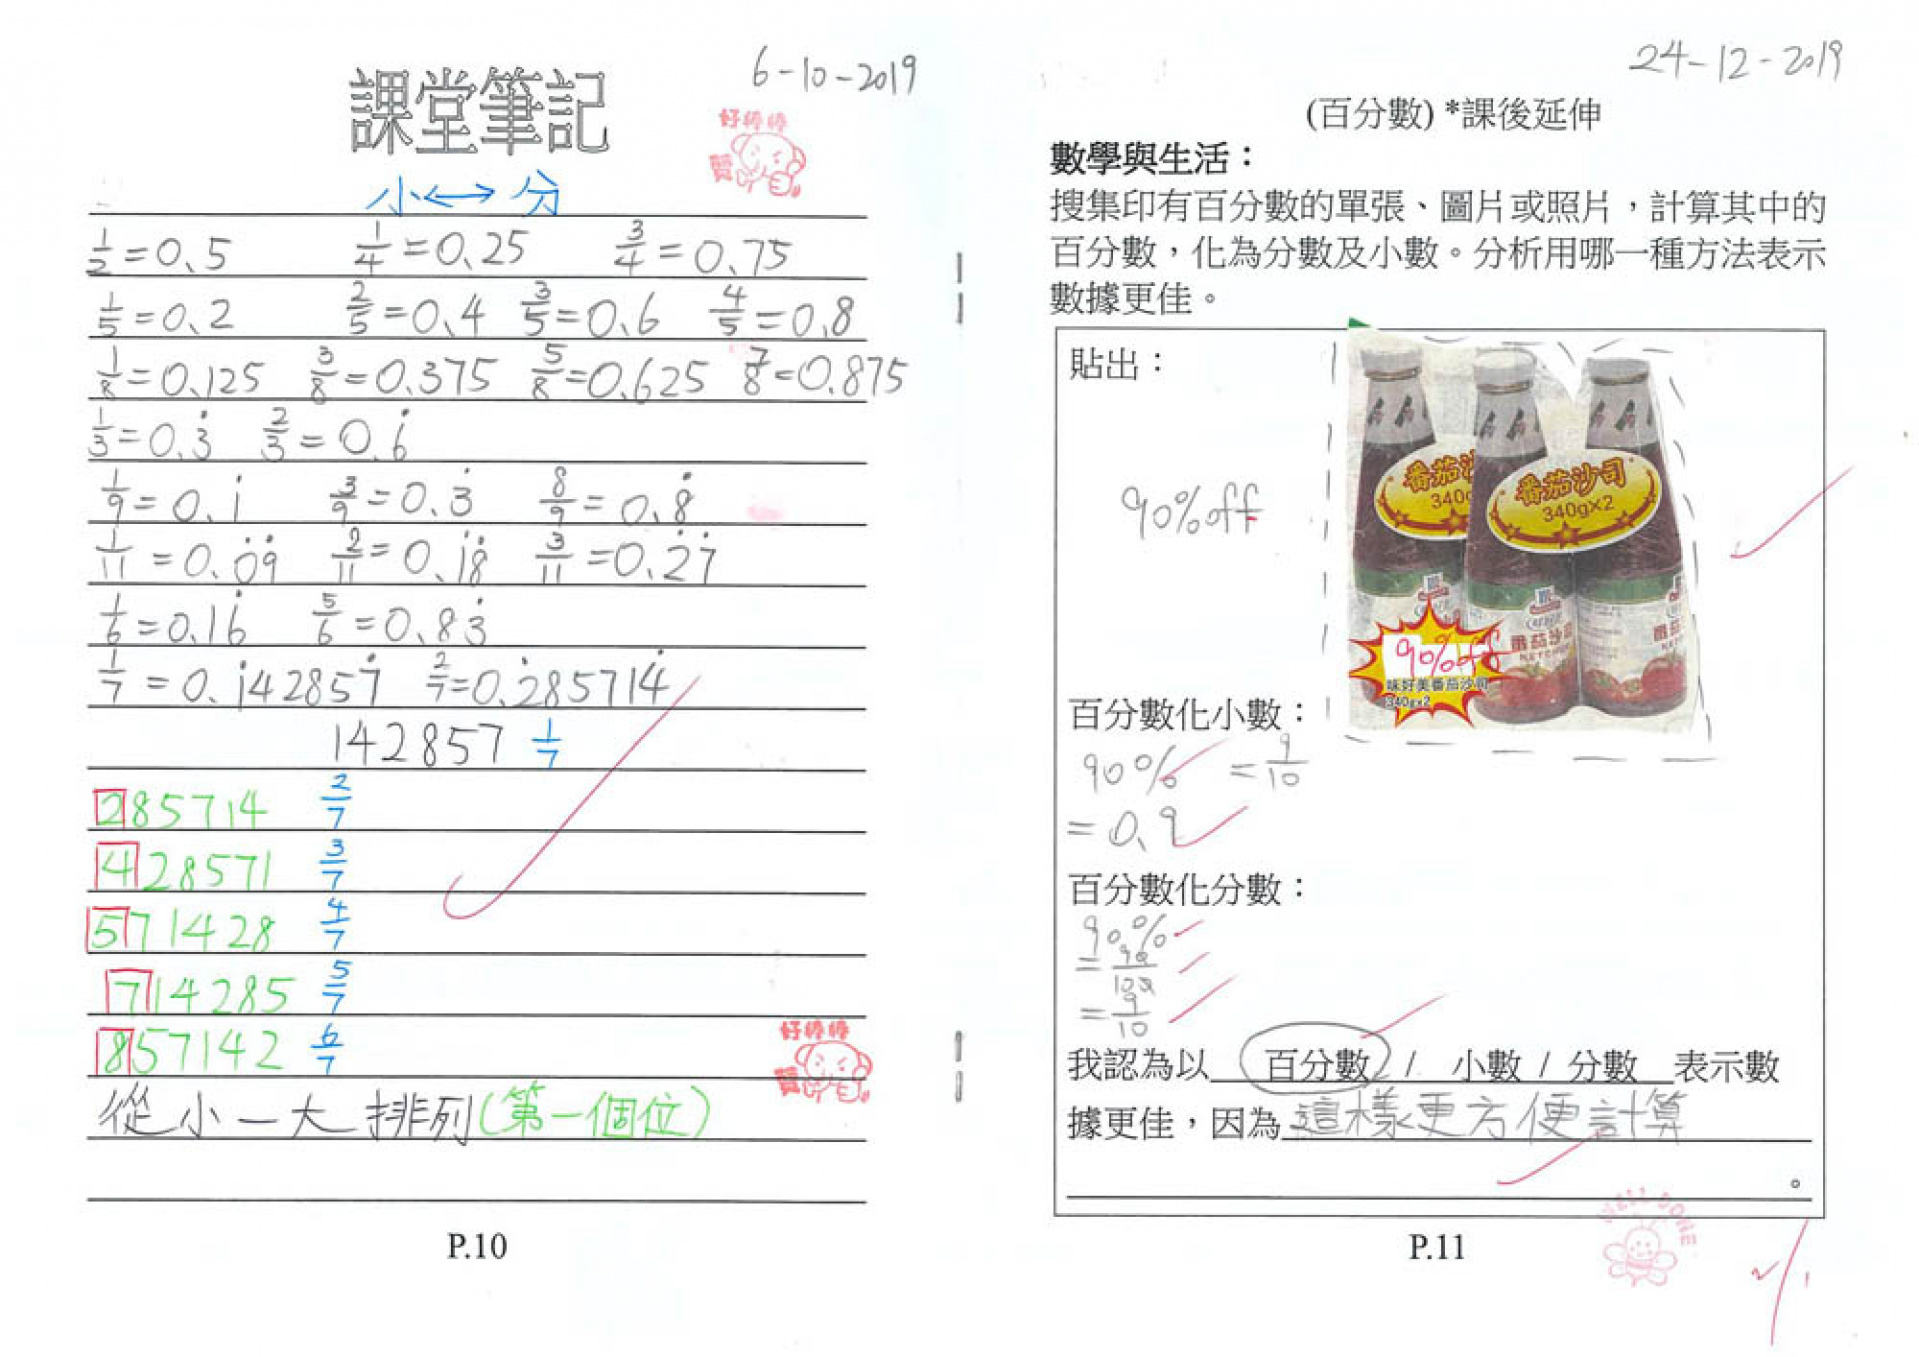 6-10-2019
課堂筆記
好棒棒
贊
小↔分
1/2=0.5 1/4=0.25 3/4=0.75
1/5=0.2 2/5=0.4 3/5=0.6 4/5=0.8
1/8=0.125 3/8=0.375 5/8=0.625 7/8=0.875
1/3=0.3̇ 2/3=0.6̇
1/9=0.1̇ 3/9=0.3̇ 8/9=0.8̇
1/11=0.0̇9̇ 2/11=0.1̇8̇ 3/11=0.2̇7̇
1/6=0.16̇ 5/6=0.83̇
1/7=0.1̇42857̇ 2/7=0.2̇85714̇
142857 1/7
285714 2/7
428571 3/7
571428 4/7
714285 5/7
857142 6/7
好棒棒
贊
從小一大排列(第一個位)
P.10
24-12-2019
(百分數) *課後延伸
數學與生活：
搜集印有百分數的單張、圖片或照片，計算其中的
百分數，化為分數及小數。分析用哪一種方法表示
數據更佳。
貼出：
90%off
番茄沙司
340g×2
番茄沙司
90%off
味好美番茄沙司
340g×2
百分數化小數：
90% =9/10
=0.9
百分數化分數：
90%
=90/100
=9/10
我認為以 百分數 / 小數 / 分數 表示數
據更佳，因為這樣更方便計算
。
WELL DONE
P.11
2/1